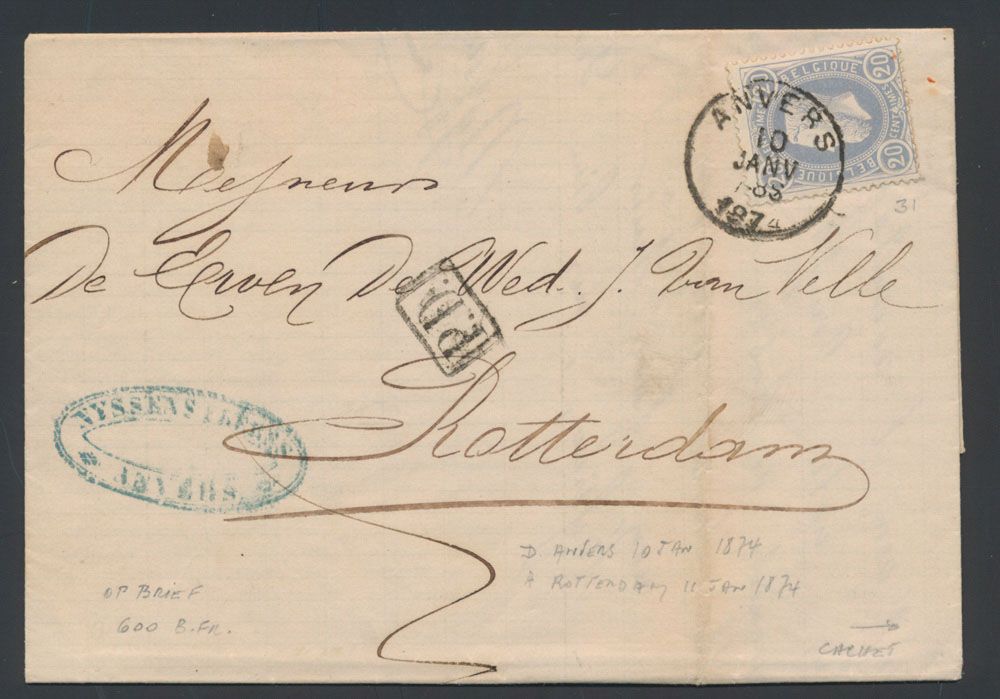 BELGIQUE
20 20
CENTIMES
20
BELGIQUE
ANVERS
10
JANV
1874
31
Messieurs
De Erven De Wed. J. van Velle
P.D.
Rotterdam
NYSSENS FRERES
ANVERS
D. ANVERS 10 JAN 1874
A ROTTERDAM 11 JAN 1874
OP BRIEF
600 B.FR.
CACHET